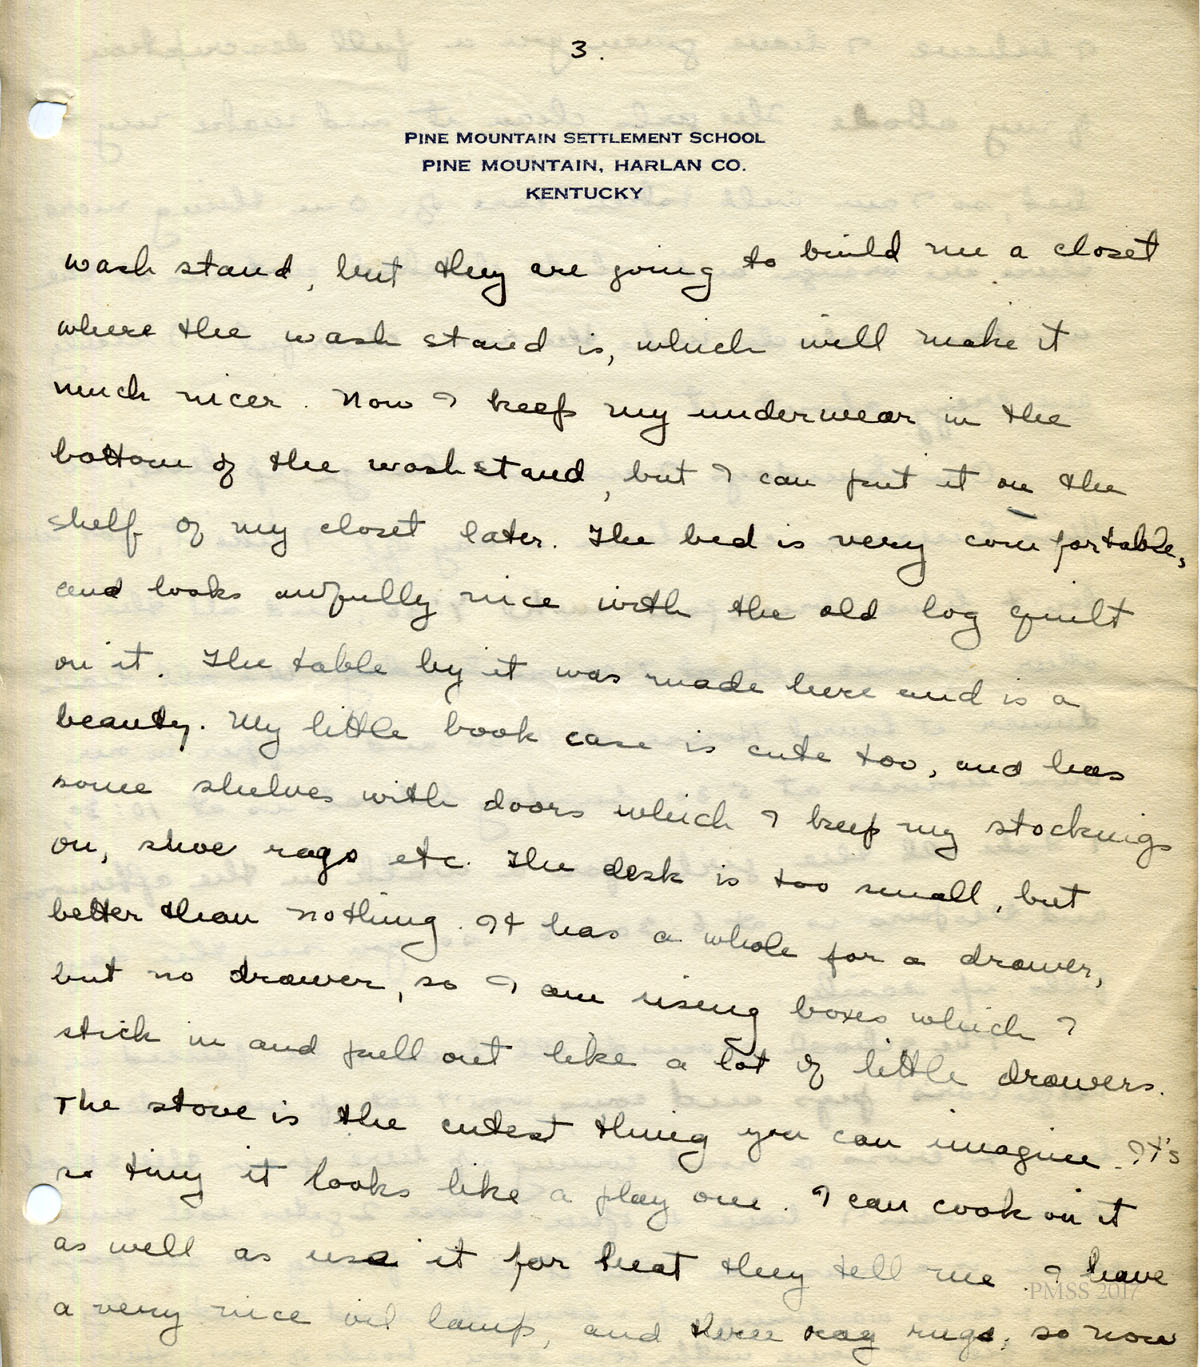 3.
PINE MOUNTAIN SETTLEMENT SCHOOL
PINE MOUNTAIN, HARLAN CO.
KENTUCKY
wash stand, but they are going to build me a closet
where the wash stand is, which will make it
much nicer. Now I keep my underwear in the
bottom of the washstand, but I can put it on the
shelf of my closet later. The bed is very comfortable,
and looks awfully nice with the old log quilt
on it. The table by it was made here and is a
beauty. My little book case is cute too, and has
some shelves with doors which I keep my stockings
on, shoe rags etc. The desk is too small, but
better than nothing. It has a whole for a drawer,
but no drawer, so I am using boxes which I
stick in and pull out like a lot of little drawers.
The stove is the cutest thing you can imagine. It's
so tiny it looks like a play one. I can cook on it
as well as use it for heat they tell me. I have
a very nice oil lamp, and three rag rugs, so now
PMSS 2017